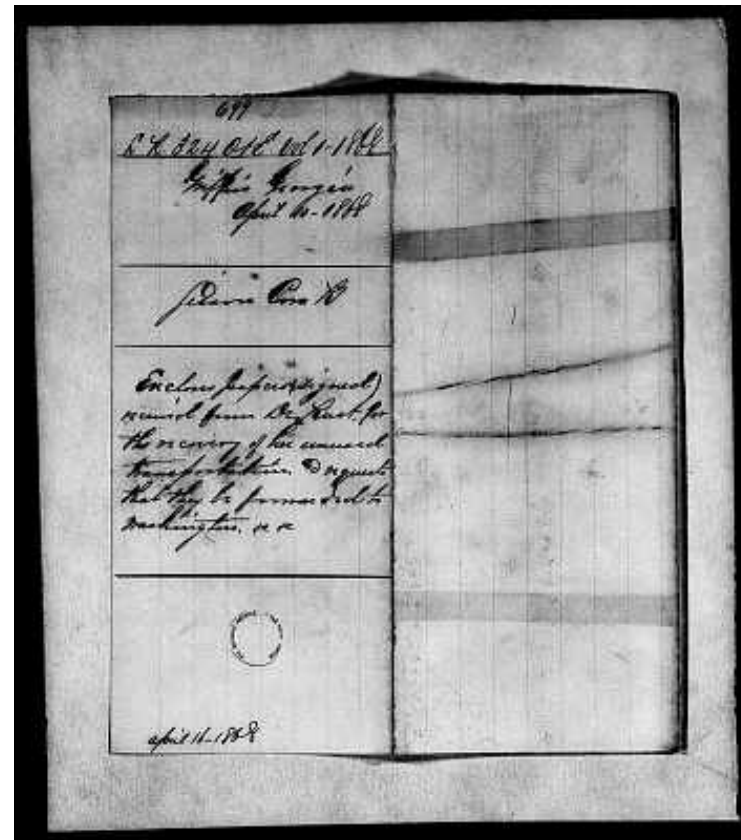 699
L R 324 Vol 1-1868
Griffin Georgia
April 10-1868
B
Encloses papers (signed)
received from for
the recovery of her unused
transportation & requests
that they be forwarded to
Washington.
April 16-1868